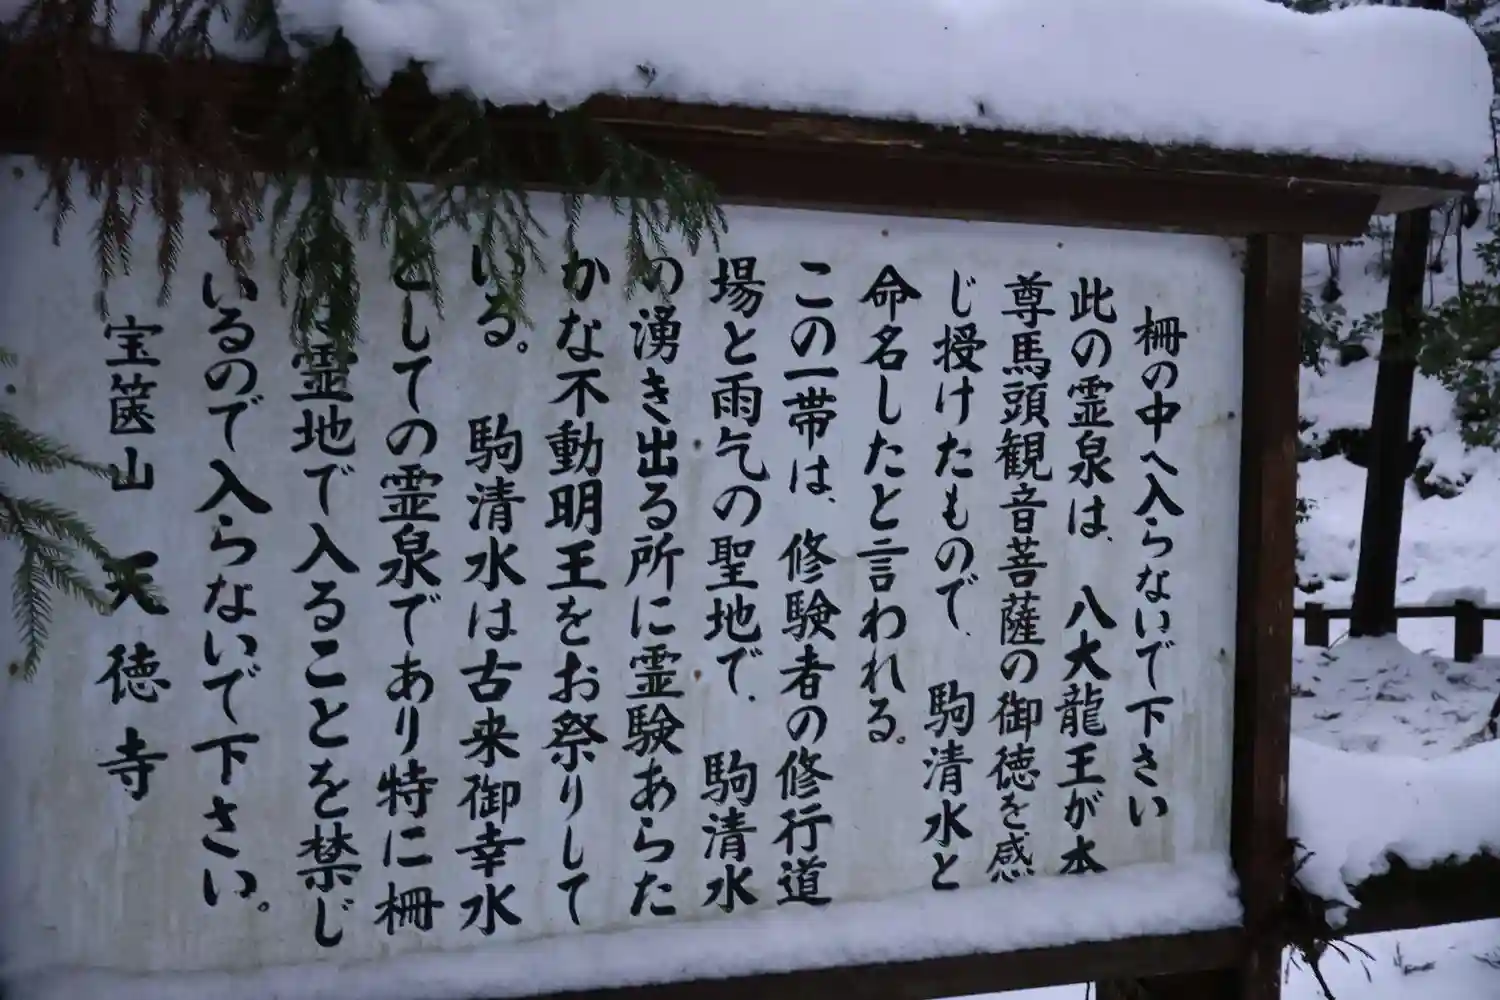 柵の中へ入らないで下さい
此の霊泉は、八大龍王が本
尊馬頭観音菩薩の御徳を感
じ授けたもので、駒清水と
命名したと言われる。
この一帯は、修験者の修行道
場と雨乞の聖地で、駒清水
の湧き出る所に霊験あらた
かな不動明王をお祭りして
いる。駒清水は古来御幸水
としての霊泉であり特に柵
霊地で入ることを禁じ
いるので入らないで下さい。
宝篋山 天徳寺